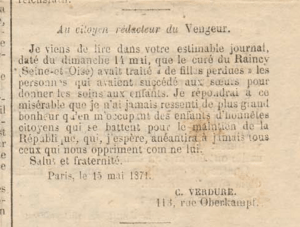 Au citoyen rédacteur du Vengeur.
Je viens de lire dans votre estimable journal,
daté du dimanche 14 mai, que le curé du Raincy
(Seine-et-Oise) avait traité « de filles perdues » les
personnes qui avaient succédé aux sœurs pour
donner les soins aux enfants. Je répondrai à ce
misérable que je n'ai jamais ressenti de plus grand
bonheur q'en m'occupant des enfants d'honnêtes
citoyens qui se battent pour le maintien de la
République, qui, j'espère, anéantira à jamais tous
ceux qui nous oppriment com ne lui.
Salut et fraternité.
Paris, le 15 mai 1871.
C. VERDURE.
113, rue Oberkampf.